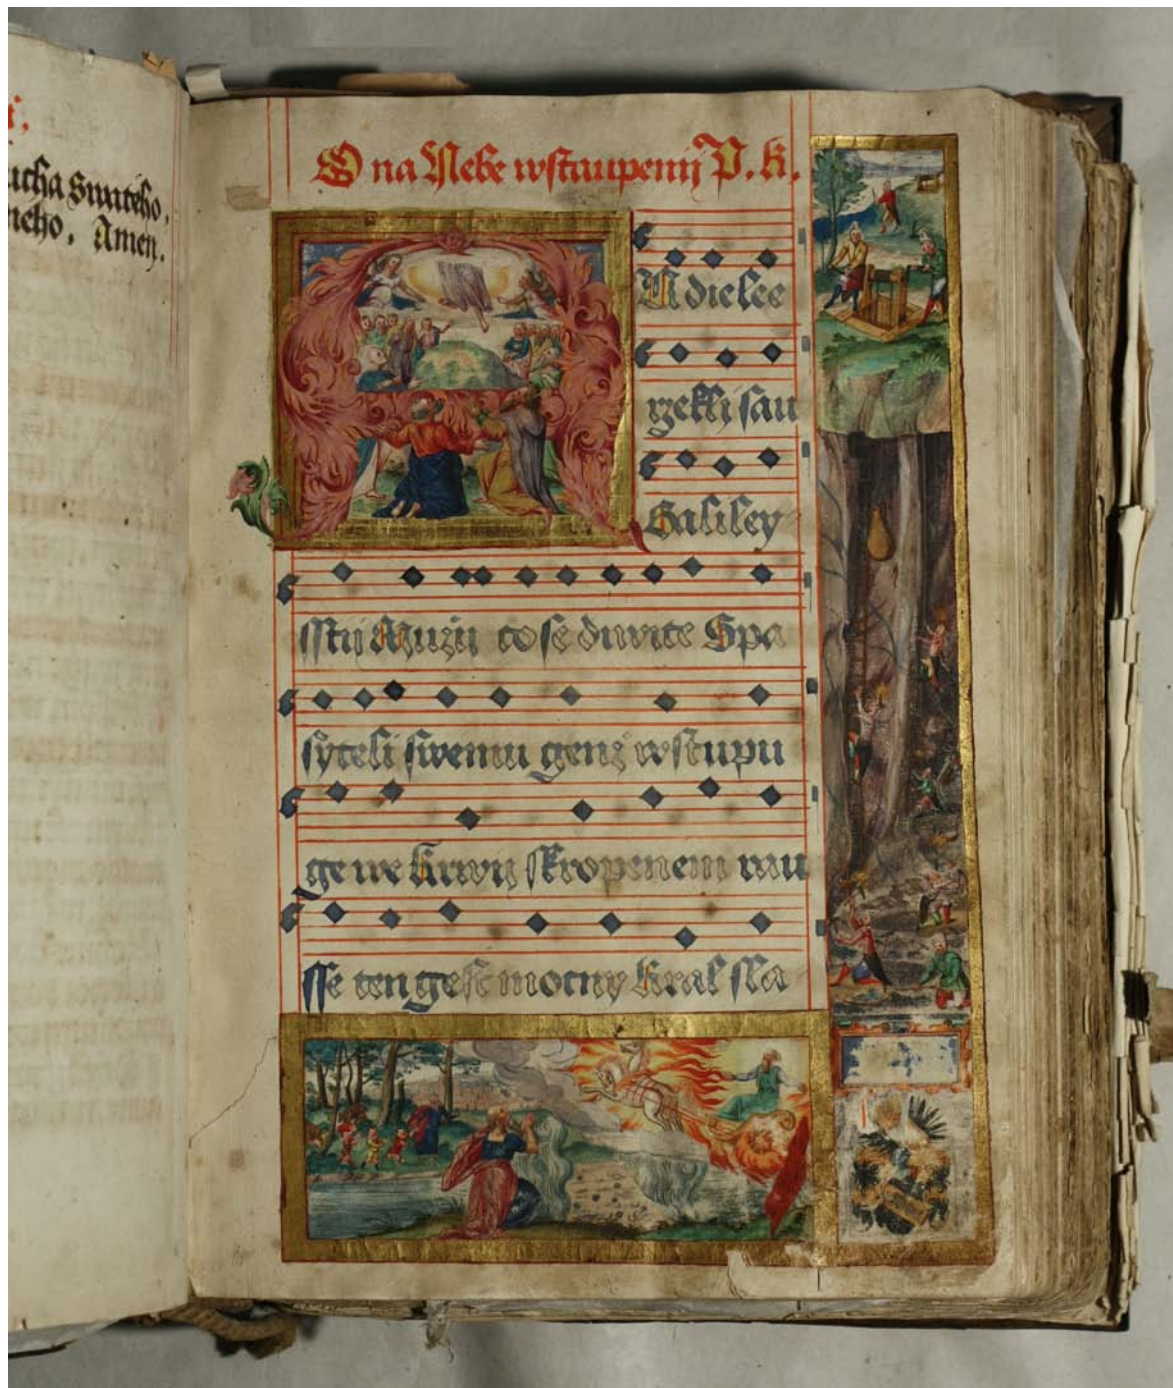 ucha Swateho,
neho, Amen.
O na Nebe wstaupenij P. K.
Andielee
rzekli sau
Galiley
sstij Muzij co se diwite Spa
syteli swemu genz wstupu
ge we Krwij skropenem rau
sse ten gest mocny Kral sla